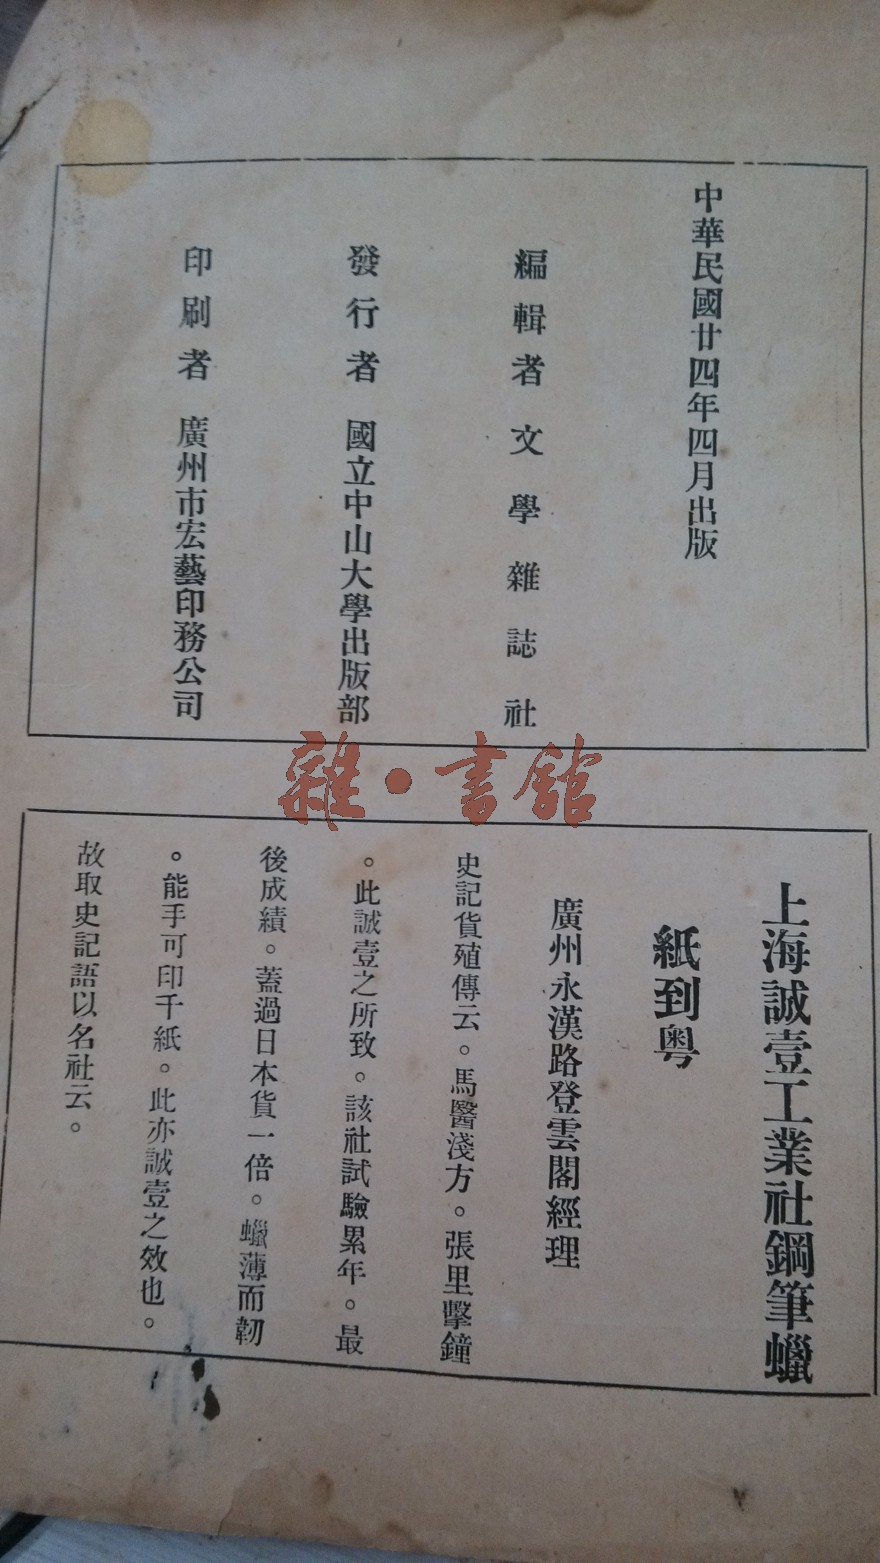 中華民國廿四年四月出版
編輯者 文學雜誌社
發行者 國立中山大學出版部
印刷者 廣州市宏藝印務公司
雜·書館
上海誠壹工業社鋼筆蠟
紙到粵
廣州永漢路登雲閣經理
史記貨殖傳云。馬醫淺方。張里擊鐘
。此誠壹之所致。該社試驗累年。最
後成績。蓋過日本貨一倍。蠟薄而韌
。能手可印千紙。此亦誠壹之效也。
故取史記語以名社云。